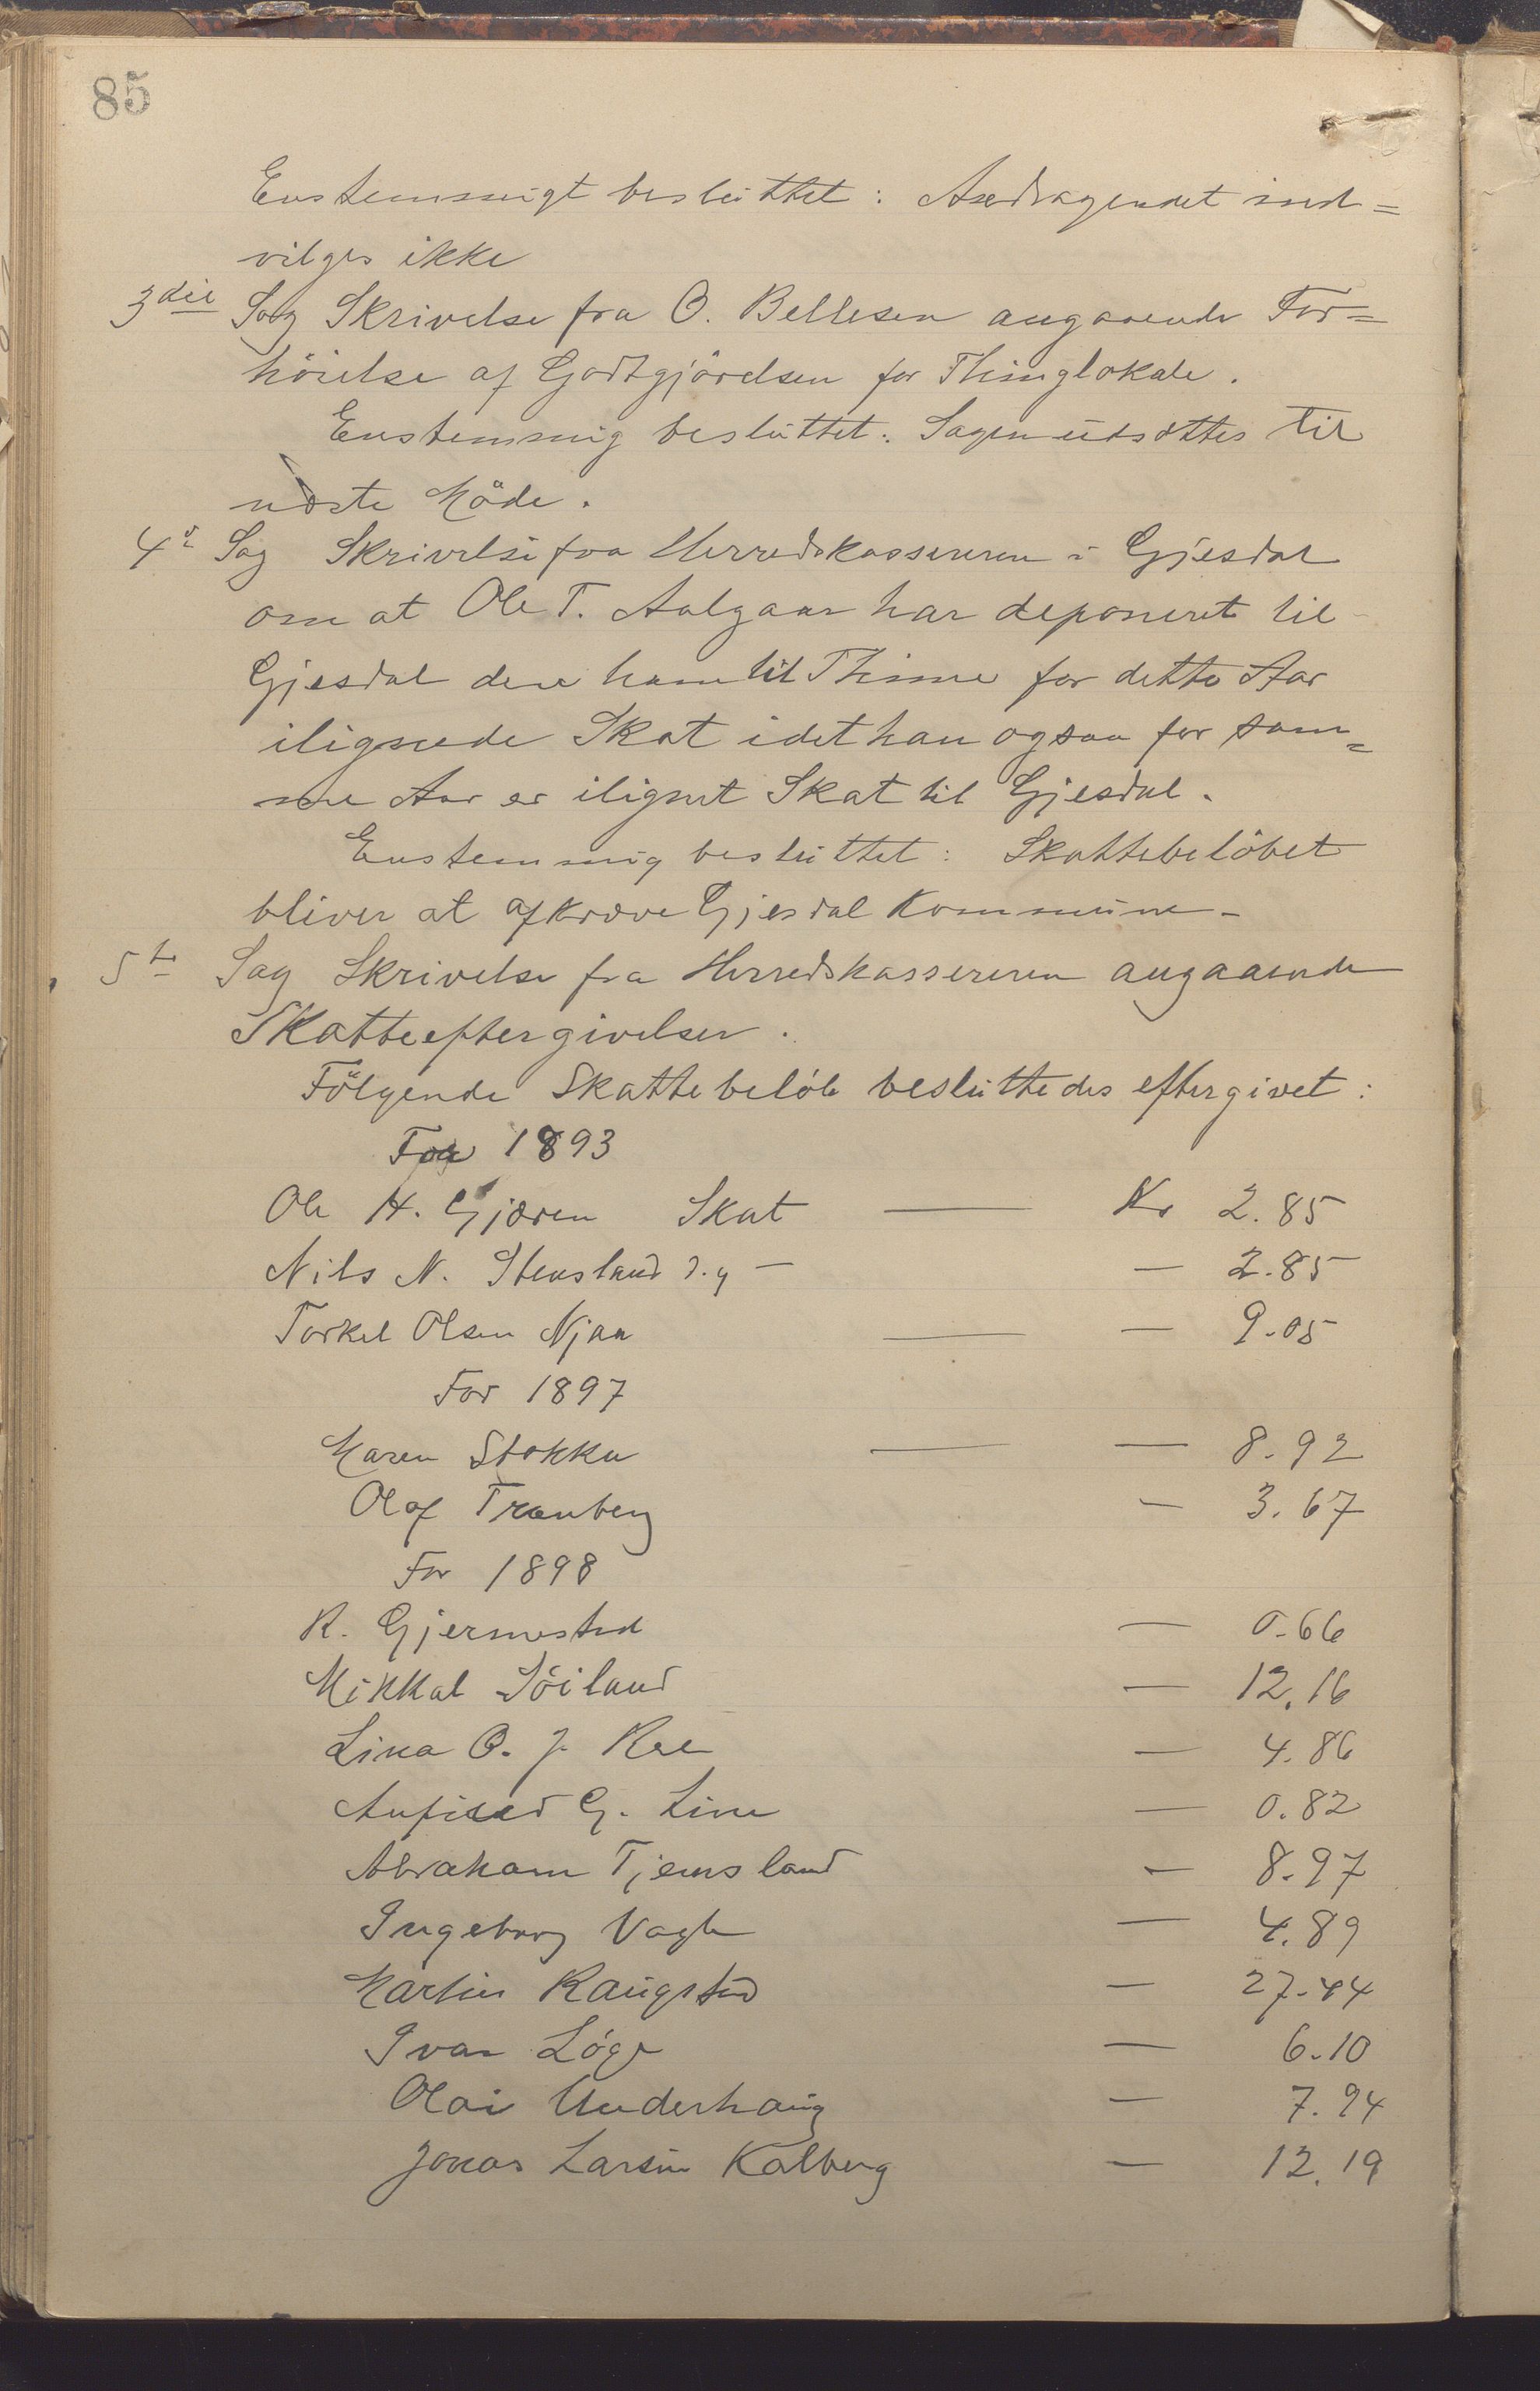 85
Enstemmigt besluttet: Andragendet ind=
vilges ikke
3die Sag Skrivelse fra O. Bellesen angaaende For=
höielse af Godtgjörelsen for Thinglokale.
Enstemmig besluttet: Sagen udsættes til
næste Möde.
4de Sag Skrivelse fra Herredskassereren i Gjesdal
om at Ole T. Aalgaar har deponeret til
Gjesdal den ham til Thime for dette Aar
ilignede Skat idet han ogsaa for sam=
me Aar er ilignet Skat til Gjesdal.
Enstemmig besluttet: Skattebelöbet
bliver at afkræve Gjesdal Kommune-
5te Sag Skrivelse fra Herredskassereren angaaende
Skatteeftergivelser.
Fölgende Skattebelöb besluttedes eftergivet:
For 1893
Ole H. Gjæren Skat — Kr 2.85
Nils N. Stensland d.y — — 2.85
Torkel Olsen Njaa — — 9.05
For 1897
Maren Stokka — — 8.92
Olaf Tranberg — 3.67
For 1898
R. Gjermestad — 0.66
Mikkal Söiland — 12.16
Lina O. J. Ree — 4.86
G. Line — 0.82
Abraham Tjemsland — 8.97
Ingeborg Vagle — 4.89
Martin Raugstad — 27.44
Ivar Löge — 6.10
Olai Underhaug — 7.94
Jonas Larsen Kalberg — 12.19